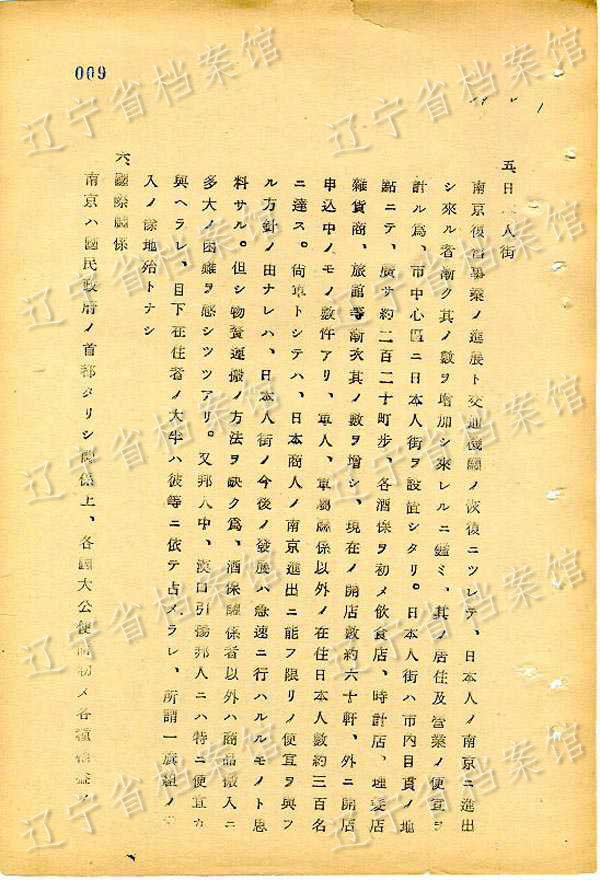 009
五、日本人街
南京復舊事業ノ進展ト交通機關ノ恢復ニツレテ、日本人ノ南京ニ進出
シ來ル者漸ク其ノ數ヲ增加シ來レルニ鑑ミ、其ノ居住及營業ノ便宜ヲ
計ル爲、市中心區ニ日本人街ヲ設置シタリ。日本人街ハ市內目貫ノ地
點ニテ、廣サ約二百二十町步、各酒保ヲ初メ飮食店、時計店、理髮店
雜貨商、旅館等漸次其ノ數ヲ增シ、現在ノ開店數約六十軒、外ニ開店
申込中ノモノ數件アリ、軍人、軍屬關係以外ノ在住日本人數約三百名
ニ達ス。尙軍トシテハ、日本商人ノ南京進出ニ能フ限リノ便宜ヲ與フ
ル方針ノ由ナレハ、日本人街ノ今後ノ發展ハ急速ニ行ハルルモノト思
料サル。但シ物資運搬ノ方法ヲ缺ク爲、酒保關係者以外ハ商品搬入ニ
多大ノ困難ヲ感シツツアリ。又邦人中、漢口引揚邦人ニハ特ニ便宜ヲ
與ヘラレ、目下在住者ノ大半ハ彼等ニ依テ占メラレ、所謂一旗組ノ
入ノ餘地殆トナシ
六、國際關係
南京ハ國民政府ノ首都タリシ關係上、各國大公使館初メ各種
辽宁省档案馆
辽宁省档案馆
辽宁省档案馆
辽宁省档案馆
辽宁省档案馆
辽宁省档案馆